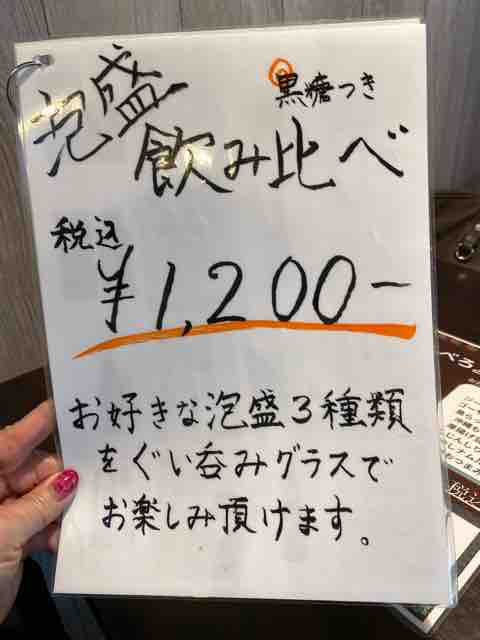 泡盛
黒糖つき
飲み比べ
税込
¥1,200-
お好きな泡盛3種類
をぐい呑みグラスで
お楽しみ頂けます。
べろ